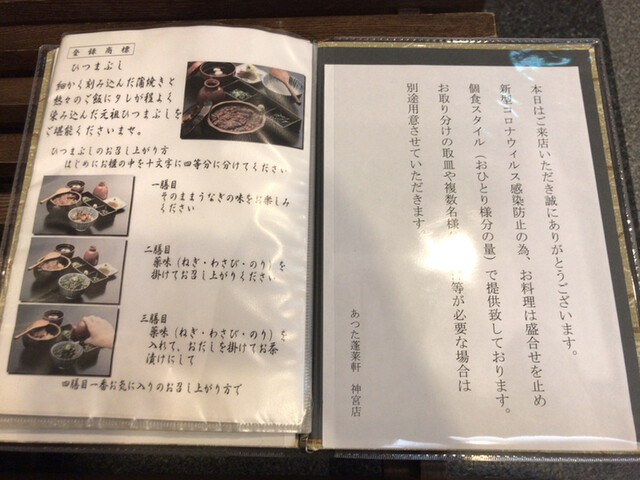 登録商標
ひつまぶし
細かく刻み込んだ蒲焼きと
熱々のご飯にタレが程よく
染み込んだ元祖ひつまぶしを
ご堪能くださいませ。
ひつまぶしのお召し上がり方
はじめにお櫃の中を十文字に四等分に分けてください
一膳目
そのままうなぎの味をお楽しみ
ください
二膳目
薬味(ねぎ・わさび・のり)を
掛けてお召し上がりください
三膳目
薬味(ねぎ・わさび・のり)を
入れて、おだしを掛けてお茶
漬けにして
四膳目一番お気に入りのお召し上がり方で
本日はご来店いただき誠にありがとうございます。
新型コロナウィルス感染防止の為、お料理は盛合せを止め
個食スタイル(おひとり様分の量)で提供致しております。
お取り分けの取皿や複数名様 等が必要な場合は
別途用意させていただきます
あつた蓬莱軒 神宮店